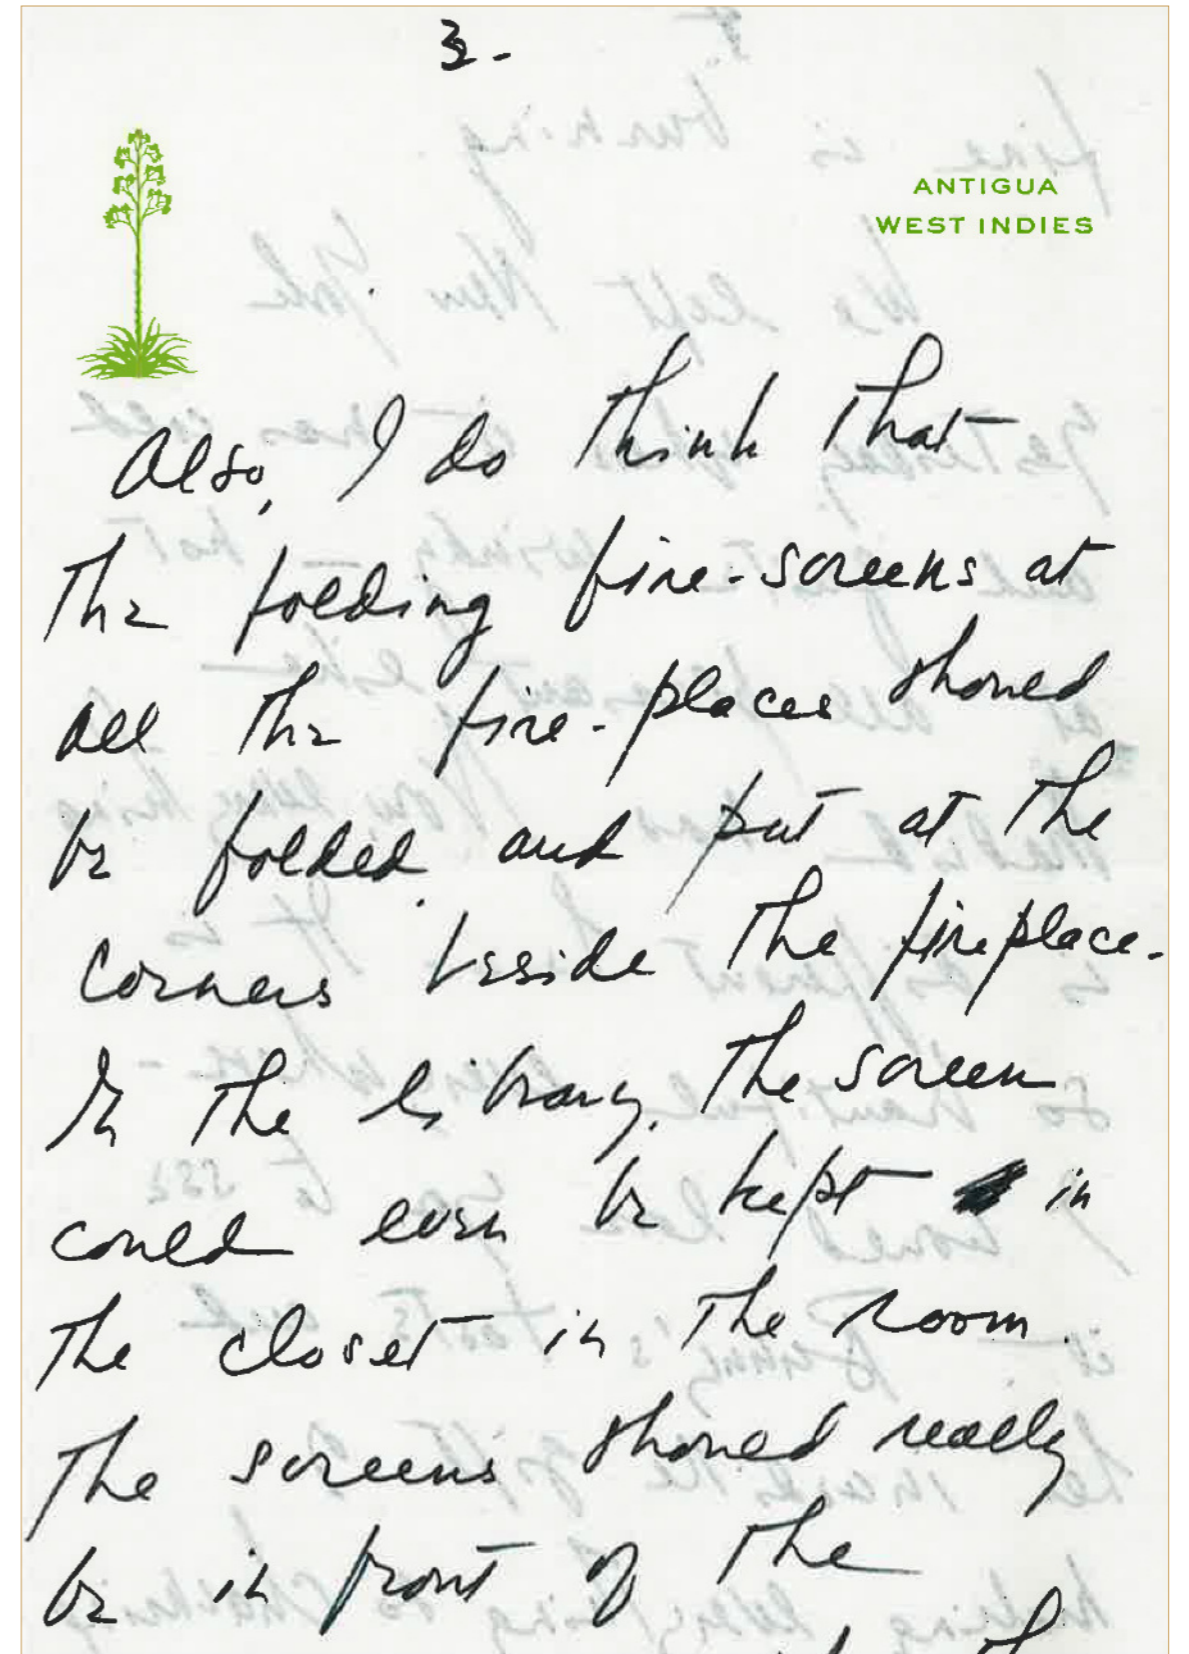 3.
ANTIGUA
WEST INDIES
Also, I do think that
the folding fire-screens at
all the fire-places should
be folded and put at the
corners beside the fireplace.
In the library, the screen
could even be kept in
the closet in the room.
The screens should really
be in front of the